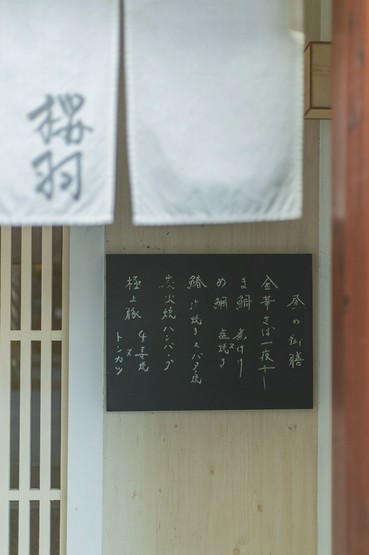 桜羽
昼の御膳
金華さば一夜干し
き鯛 煮付け
め鯛 又 塩焼き
鰆
炭火焼ハンバーグ
極上豚 生姜焼
又
トンカツ